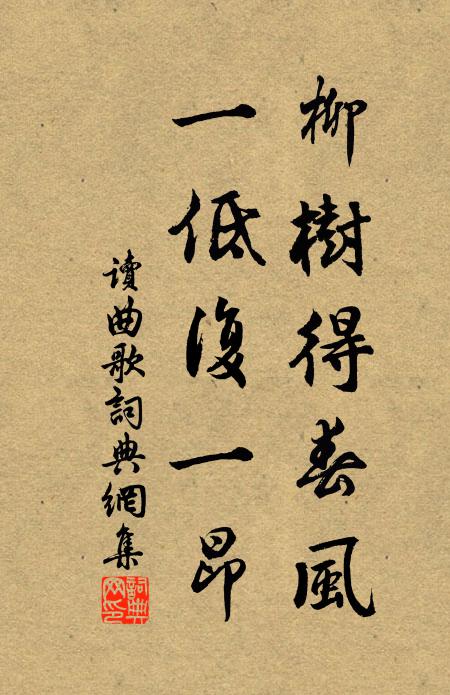 柳樹得春風
一低復一昂
讀曲歌詞典網集
詞典网印